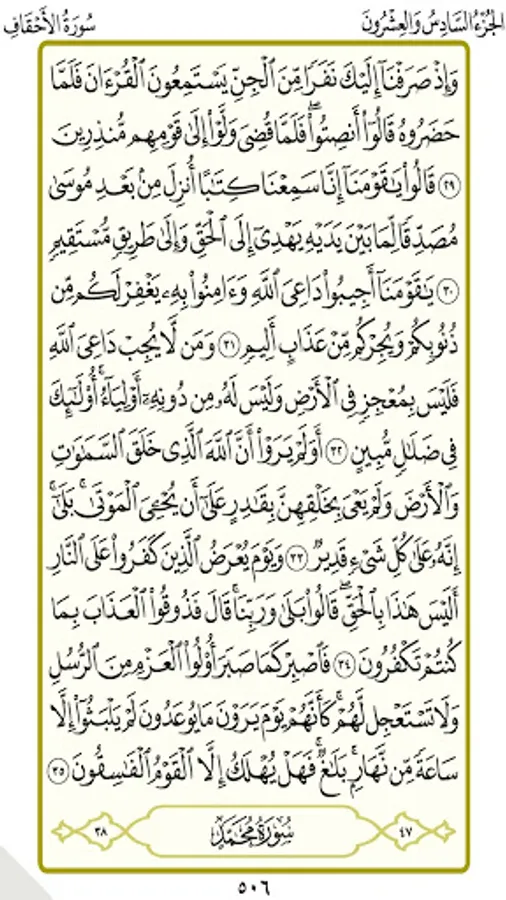 الجُزْءُ السَّادِسُ وَالعِشْرُونَ سُورَةُ الأَحْقَافِ
وَإِذْ صَرَفْنَآ إِلَيْكَ نَفَرًا مِّنَ ٱلْجِنِّ يَسْتَمِعُونَ ٱلْقُرْءَانَ فَلَمَّا
حَضَرُوهُ قَالُوٓا۟ أَنصِتُوا۟ۖ فَلَمَّا قُضِىَ وَلَّوْا۟ إِلَىٰ قَوْمِهِم مُّنذِرِينَ
﴿٢٩﴾ قَالُوا۟ يَـٰقَوْمَنَآ إِنَّا سَمِعْنَا كِتَـٰبًا أُنزِلَ مِنۢ بَعْدِ مُوسَىٰ
مُصَدِّقًا لِّمَا بَيْنَ يَدَيْهِ يَهْدِىٓ إِلَى ٱلْحَقِّ وَإِلَىٰ طَرِيقٍ مُّسْتَقِيمٍ
﴿٣٠﴾ يَـٰقَوْمَنَآ أَجِيبُوا۟ دَاعِىَ ٱللَّهِ وَءَامِنُوا۟ بِهِۦ يَغْفِرْ لَكُم مِّن
ذُنُوبِكُمْ وَيُجِرْكُم مِّنْ عَذَابٍ أَلِيمٍ ﴿٣١﴾ وَمَن لَّا يُجِبْ دَاعِىَ ٱللَّهِ
فَلَيْسَ بِمُعْجِزٍ فِى ٱلْأَرْضِ وَلَيْسَ لَهُۥ مِن دُونِهِۦٓ أَوْلِيَآءُۚ أُو۟لَـٰٓئِكَ
فِى ضَلَـٰلٍ مُّبِينٍ ﴿٣٢﴾ أَوَلَمْ يَرَوْا۟ أَنَّ ٱللَّهَ ٱلَّذِى خَلَقَ ٱلسَّمَـٰوَٰتِ
وَٱلْأَرْضَ وَلَمْ يَعْىَ بِخَلْقِهِنَّ بِقَـٰدِرٍ عَلَىٰٓ أَن يُحْـِۧىَ ٱلْمَوْتَىٰۚ بَلَىٰٓ
إِنَّهُۥ عَلَىٰ كُلِّ شَىْءٍ قَدِيرٌ ﴿٣٣﴾ وَيَوْمَ يُعْرَضُ ٱلَّذِينَ كَفَرُوا۟ عَلَى ٱلنَّارِ
أَلَيْسَ هَـٰذَا بِٱلْحَقِّۖ قَالُوا۟ بَلَىٰ وَرَبِّنَاۚ قَالَ فَذُوقُوا۟ ٱلْعَذَابَ بِمَا
كُنتُمْ تَكْفُرُونَ ﴿٣٤﴾ فَٱصْبِرْ كَمَا صَبَرَ أُو۟لُوا۟ ٱلْعَزْمِ مِنَ ٱلرُّسُلِ
وَلَا تَسْتَعْجِل لَّهُمْۚ كَأَنَّهُمْ يَوْمَ يَرَوْنَ مَا يُوعَدُونَ لَمْ يَلْبَثُوٓا۟ إِلَّا
سَاعَةً مِّن نَّهَارٍۭۚ بَلَـٰغٌۚ فَهَلْ يُهْلَكُ إِلَّا ٱلْقَوْمُ ٱلْفَـٰسِقُونَ ﴿٣٥﴾
٤٧ سُورَةُ مُحَمَّدٍ ٣٨
٥٠٦